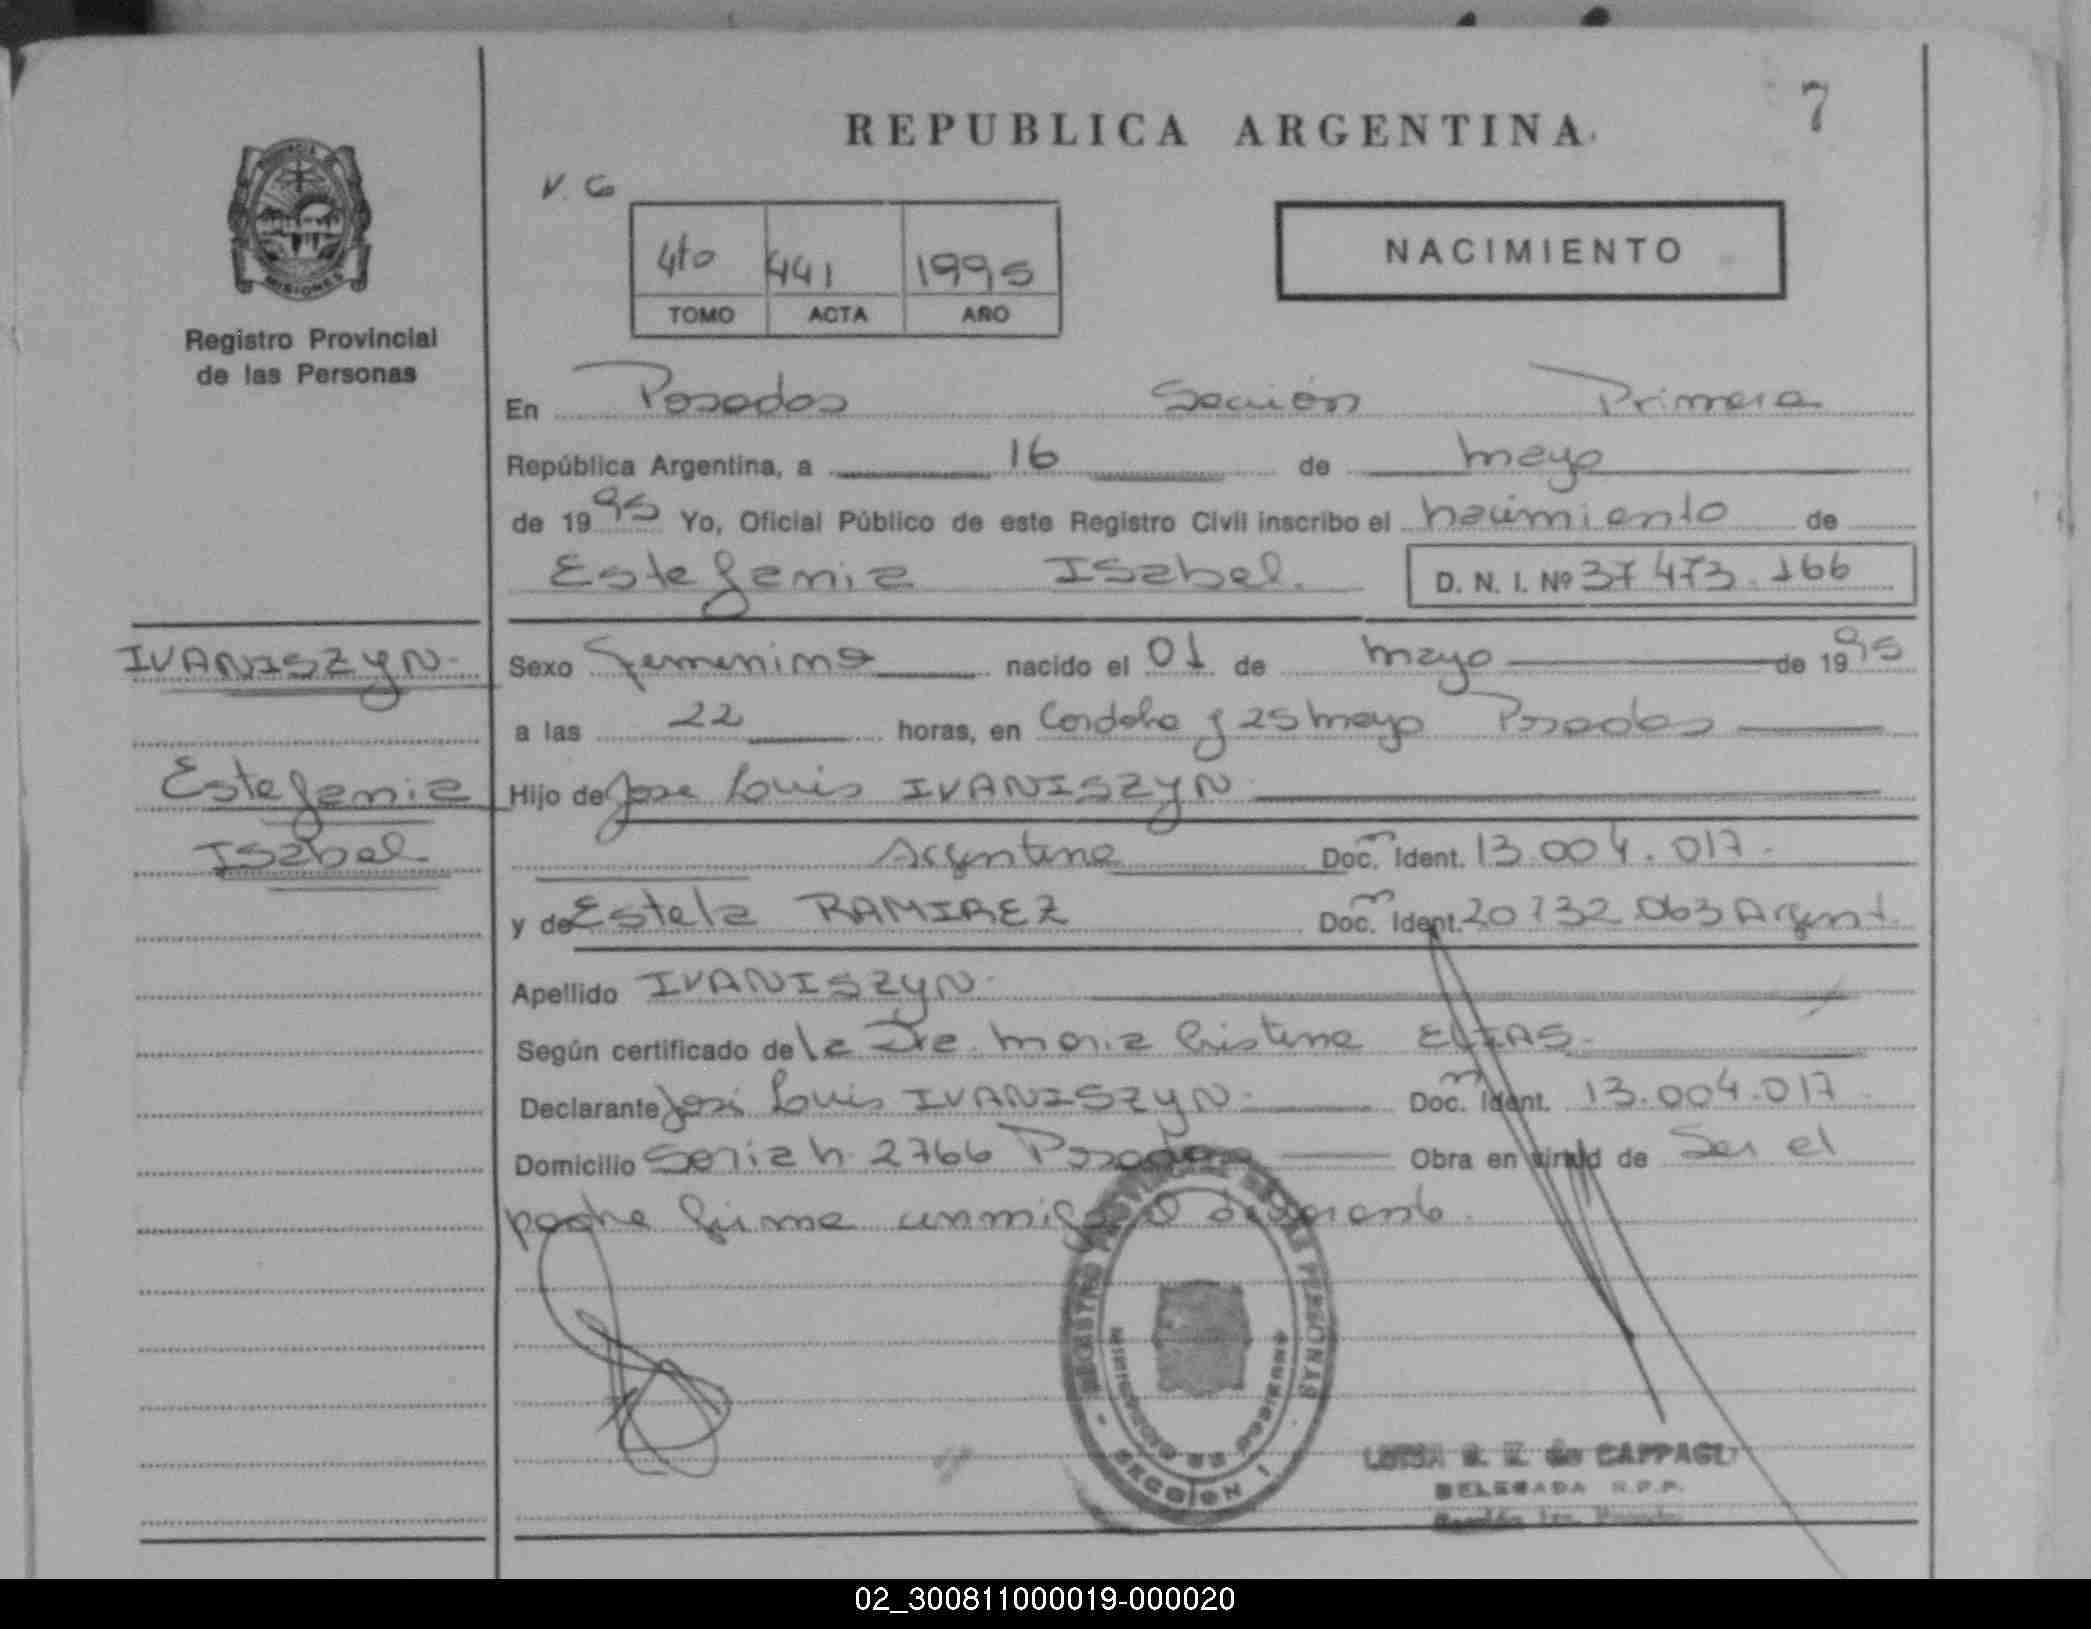 REPUBLICA ARGENTINA
7
V. G
4to 441 1995
TOMO ACTA AÑO
NACIMIENTO
MISIONES
Registro Provincial
de las Personas
En Posadas Sección Primera
República Argentina, a 16 de mayo
de 1995 Yo, Oficial Público de este Registro Civil inscribo el nacimiento de
Estefania Isabel. D. N. I. Nº 37 473.166
IVANISZYN.
Sexo femenino nacido el 01 de mayo de 1995
a las 22 horas, en Cordoba y 25 mayo Posadas
Estefania
Hijo de Jose Louis IVANISZYN
Isabel
Argentina Doc. Ident. 13.004.017.
y de Estela RAMIREZ Doc. Ident. 20 732 063 Argent.
Apellido IVANISZYN.
Según certificado de la Dra. Maria Cristina ELIAS.
Declarante José Louis IVANISZYN. Doc. Ident. 13.004.017.
Domicilio 2766 Posadas Obra en virtud de Ser el
padre firma conmigo el
REGISTRO PROVINCIAL DE LAS PERSONAS
MINISTERIO DE GOBIERNO
SECCION I
de CAPPAGLI
DELEGADA R.P.P.
02_300811000019-000020